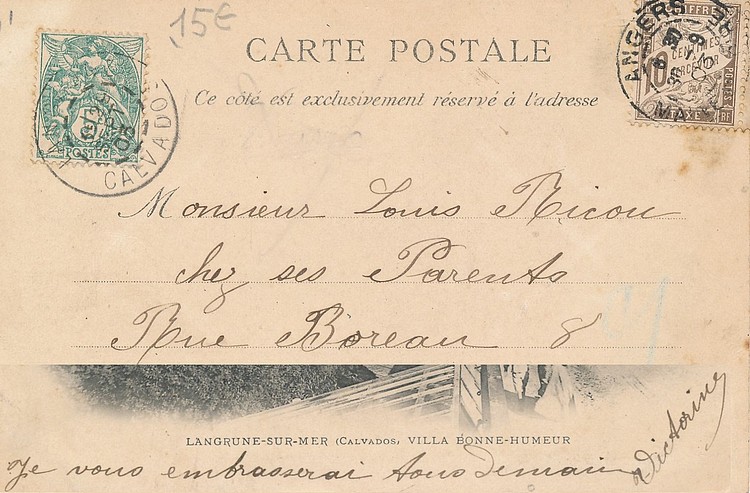 15€
CARTE POSTALE
Ce côté est exclusivement réservé à l'adresse
5
POSTES
CALVADOS
ANGERS
CHIFFRE
10
CENTIMES
PERCEVOIR
TAXE
RF
Monsieur Louis Ricou
chez ses Parents
Rue Boreau 8
LANGRUNE-SUR-MER (CALVADOS) VILLA BONNE-HUMEUR
Je vous embrasserai tous Demain
Victorine